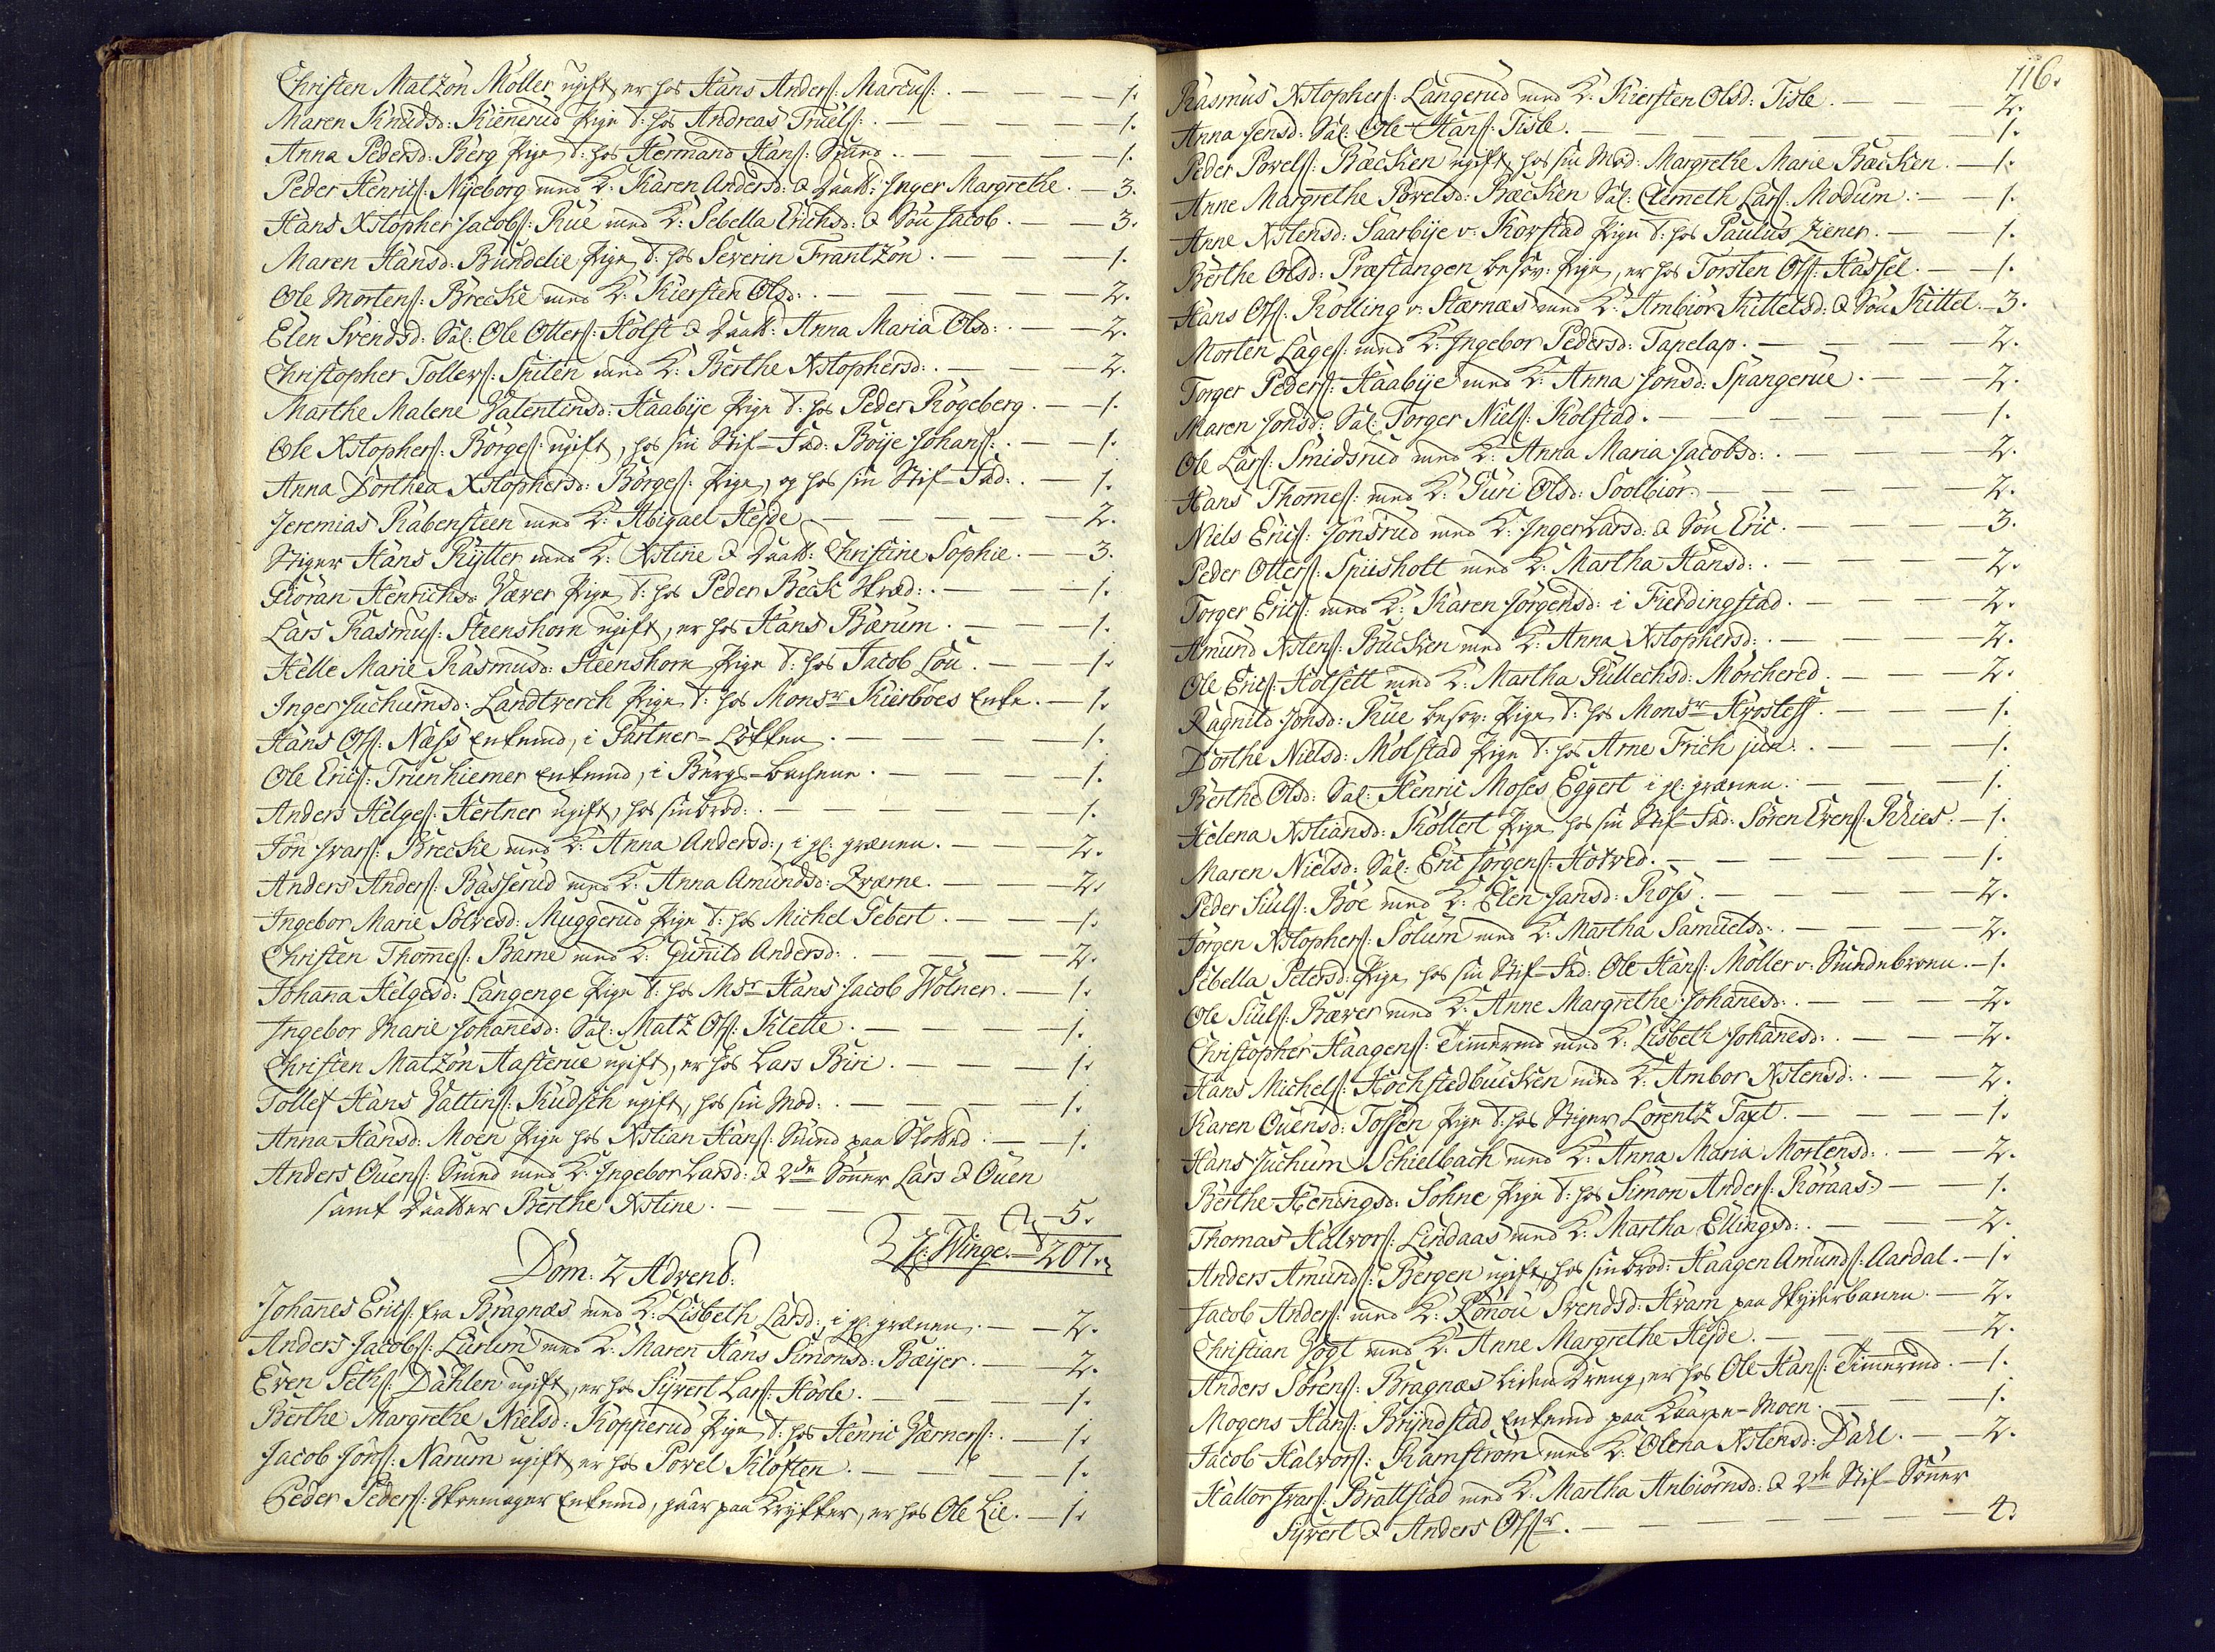 Christen Matzön Möller ugift, er hos Hans Anders: Marcus: . — — — 1.
Maren Knudsd: Kienerud Pige T: hos Andreas Truels: . — — — 1.
Anna Pedersd: Berg Pige T: hos Hermand Hans: Smed . — — — 1.
Peder Henrics: Nyeborg med K: Karen Andersd: & Daatt: Inger Margrethe . — 3.
Hans Xstopher Jacobs: Rue med K: Sebella Erichsd: & Sön Jacob . — 3.
Maren Hansd: Bundelie Pige T: hos Severin Frantzön . — — — 1.
Ole Mortens: Brecke med K: Kiersten Olsd: . — — — 2.
Elen Svendsd: Sal: Ole Otters: Holst & Daatt: Anna Maria Olsd: . — 2.
Christopher Tollevs: Spiten med K: Berthe Xstophersd: . — — 2.
Marthe Malene Valentinsd: Haabye Pige T: hos Peder Rögeberg . — 1.
Ole Xstophers: Börges: ugift, hos sin Stif-Fad: Böije Johans: . — 1.
Anna Dorthea Xstophersd: Börges: Pige, og hos sin Stif-Fad: . — 1.
Jeremias Rabensteen med K: Abigael Hejde — — — 2.
Stiger Hans Rytter med K: Xstine & Daatt: Christine Sophie . — 3.
Giöran Henrichsd: Væver Pige T: hos Peder Beck Skræd: . — — 1.
Lars Rasmus: Steenshorn ugift, er hos Hans Bærum . — — 1.
Helle Marie Rasmusd: Steenshorn Pige T: hos Jacob Lou . — — 1.
Inger Juchumsd: Landtverch Pige T: hos Monsr Kierböes Enke . — 1.
Hans Ols: Næss Enkemd, i Gartner-Lökken . — — — 1.
Ole Erics: Trünhiemer Enkemd, i Bergs-bachene . — — — 1.
Anders Helges: Hertner ugift, hos sin brod: . — — — 1.
Jon Ivars: Brecke med K: Anna Andersd:, i gl: grænen . — — 2.
Anders Anders: Basserud med K: Anna Amundsd: Qværne . — — 2.
Ingebor Marie Solvesd: Muggerud Pige T: hos Michel Gebert . — — 1.
Christen Thom̄es: Bame med K: Gun̄ild Andersd: . — — 2.
Johan̄a Helgesd: Langenge Pige T: hos Msr Hans Jacob Wölner . — 1.
Ingebor Marie Johan̄esd: Sal: Matz Ols: Klette . — — — 1.
Christen Matzön Aasterue ugift, er hos Lars Biri . — — — 1.
Tollef Hans Vattins: Kudsch ugift, hos sin Mod: . — — — 1.
Anna Hansd: Moen Pige hos Xstian Hans: Smed paa Slotted . — — 1.
Anders Ouens: Smed med K: Ingebor Larsd: & 2de Sön̄er Lars & Ouen
samt Daatter Berthe Xstine . — — — 5.
J: Winge. — 207.
Dom. 2 Advend:
Johan̄es Erics: fra Bragnæs med K: Lisbeth Larsd:, i gl: grænen . — — 2.
Anders Jacobs: Lurum med K: Maren Hans Simonsd: Bæyer . — — 2.
Even Seths: Dahlen ugift, er hos Syvert Lars: Hoole . — — — 1.
Berthe Margrethe Nielsd: Kopperud Pige T: hos Henric Værners: . — 1.
Jacob Jons: Narum ugift er hos Povel Klöften . — — — 1.
Peder Peders: Skomager Enkemd, gaar paa Krykker, er hos Ole Lie . — 1.
116.
Rasmus Xstophers: Langerud med K: Kiersten Olsd: Tisle . — — 2.
Anna Jensd: Sal: Ole Hans: Tisle . — — — 1.
Peder Povels: Bæcken ugift, hos sin Mod: Margrethe Marie Bæcken . — 1.
Anne Margrethe Povelsd: Bæcken Sal: Clemeth Lars: Modum . — — 1.
Anne Xstensd: Saarbye v: Korstad Pige T: hos Paulus Ziener . — — 1.
Berthe Olsd: Præstangen besov: Pige, er hos Torsten Ols: Hassel . — — 1.
Hans Ols: Kolling v: Stærnæs med K: Ambiör Kittelsd: & Sön Kittel . — 3.
Morten Lages: med K: Ingebor Pedersd: Tapelap . — — — 2.
Torger Peders: Haabye med K: Anna Jonsd: Spangerue . — — 2.
Maren Jonsd: Sal: Torger Niels: Kolstad . — — — 1.
Ole Lars: Smidsrud med K: Anna Maria Jacobsd: . — — — 2.
Hans Thom̄es: med K: Guri Olsd: Soolbiör . — — — 2.
Niels Erics: Jonsrud med K: Inger Larsd: & Sön Eric . — — — 3.
Peder Otters: Spiisholt med K: Martha Hansd: . — — — 2.
Torger Erics: med K: Karen Jörgensd: i Fierdingstad . — — — 2.
Amund Xstens: Bucken med K: Anna Xstophersd: . — — — 2.
Ole Erics: Holsett med K: Martha Gullechsd: Mörchered . — — — 2.
Ragnild Jonsd: Rue besov: Pige T: hos Monsr Hvosleff . — — 1.
Dorthe Nielsd: Molstad Pige T: hos Arne Frich jun: . — — 1.
Berthe Olsd: Sal: Henric Moses Eggert i gl: grænen . — — 1.
Helena Xstiansd: Kollert Pige hos sin Stif-Fad: Sören Evens: Kries . — 1.
Maren Nielsd: Sal: Eric Jörgens: Hotved . — — — 1.
Peder Siuls: Böe med K: Elen Jansd: Ross . — — — 2.
Jörgen Xstophers: Solum med K: Martha Samuelsd: . — — — 2.
Sebella Petersd: Pige hos sin Stif-Fad: Ole Hans: Möller v: Rundebroen . — 1.
Ole Siuls: Bæver med K: Anne Margrethe Johan̄esd: . — — — 2.
Christopher Haagens: Tim̄ermd med K: Lisbeth Johan̄esd: . — — 2.
Hans Michels: Hochstedbucken med K: Ambor Xstensd: . — — 2.
Karen Ouensd: Tossen Pige T: hos Stiger Lorentz Taxt . — — 1.
Hans Juchum Schielbach med K: Anna Maria Mortensd: . — — 2.
Berthe Hen̄ingsd: Sohne Pige T: hos Simon Anders: Röraas . — — 1.
Thomas Halvors: Lindaas med K: Martha Ellingsd: . — — 2.
Anders Amunds: Bergen ugift, hos sin brod: Haagen Amunds: Aardal . — 1.
Jacob Anders: med K: Ron̄ou Svendsd: Hvam paa Skyderbanen . — 2.
Christian Vogt med K: Anne Margrethe Hejde . — — — 2.
Anders Sörens: Bragnæs liden Dreng, er hos Ole Hans: Tim̄ermd . — 1.
Mogens Hans: Bryndstad Enkemd paa Kaarpe-Moen . — — 1.
Jacob Halvors: Ramström med K: Olena Xstensd: Dahl . — — 2.
Halvor Ivars: Brattstad med K: Martha Anbiörnsd: & 2de Stif-Sön̄er
Syvert & Anders Olssr . — — — 4.